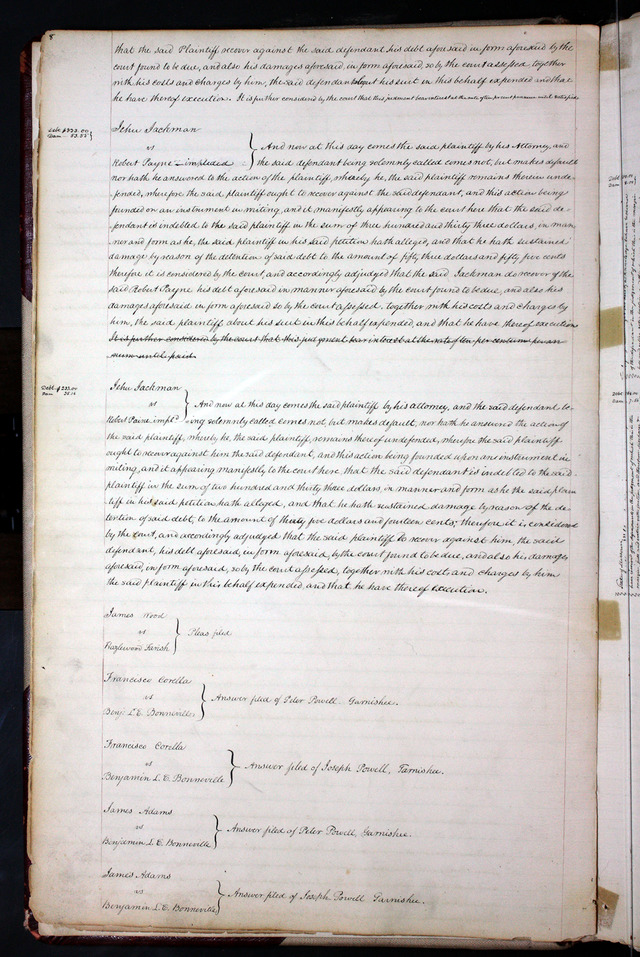 8
that the said Plaintiff recover against the said defendant his debt aforesaid in form aforesaid by the
court found to be due, and also his damages aforesaid, in form aforesaid, so by the court assessed, together
with his costs and charges by him, the said defendant about his suit in this behalf expended and that
he have thereof execution. It is further considered by the court that this judgment bear interest at the rate of ten per cent per annum until satisfied
Debt $333.00
Dam - 53.55
John Jackman
vs
Robert Payne - impleded
And now at this day comes the said plaintiff by his Attorney, and
the said defendant being solemnly called comes not, but makes default
nor hath he answered to the action of the plaintiff, whereby he, the said plaintiff remains therein unde-
fended, wherefore the said plaintiff ought to recover against the said defendant, and this action being
founded on an instrument in writing, and it manifestly appearing to the court here that the said de-
fendant is indebted to the said plaintiff in the sum of three hundred and thirty three dollars, in man,
ner and form as he, the said plaintiff in his said petition hath alleged, and that he hath sustained
damage by reason of the detention of said debt to the amount of fifty three dollars and fifty five cents
therefore it is considered by the court, and accordingly adjudged that the said Jackman do recover of the
said Robert Payne his debt aforesaid in manner aforesaid by the court found to be due, and also his
damages aforesaid in form aforesaid so by the court assessed, together with his costs and charges by
him, the said plaintiff about his suit in this behalf expended, and that he have thereof execution
It is further considered by the court that this judgment bear interest at the rate of ten per centum per an
num until paid.
Debt $233.00
Dam 35.14
John Jackman
vs
Robert Paine impld
And now at this day comes the said plaintiff by his attorney, and the said defendant be-
ing solemnly called comes not, but makes default, nor hath he answered the action of
the said plaintiff, whereby he, the said plaintiff, remains thereof undefended, wherefore the said plaintiff
ought to recover against him the said defendant, and this action being founded upon an instrument in
writing, and it appearing manifestly to the court here, that the said defendant is indebted to the said
plaintiff in the sum of two hundred and thirty three dollars, in manner and form as he the said plain
tiff in his said petition hath alleged, and that he hath sustained damage by reason of the de-
tention of said debt, to the amount of thirty five dollars and fourteen cents; therefore it is considered
by the court, and accordingly adjudged that the said plaintiff do recover against him, the said
defendant, his debt aforesaid, in form aforesaid, by the court found to be due, and also his damages
aforesaid, in form aforesaid, so by the court assessed, together with his costs and charges by him
the said plaintiff in this behalf expended, and that he have thereof execution.
James Wood
vs
Hazlewood Lanish
Pleas filed
Francisco Corella
vs
Benj. L. E. Bonneville
Answer filed of Peter Powell. Garnishee.
Francisco Corella
vs
Benjamin L. E. Bonneville
Answer filed of Joseph Powell, Garnishee.
James Adams
vs
Benjamin L. E. Bonneville
Answer filed of Peter Powell, Garnishee.
James Adams
vs
Benjamin L. E. Bonneville
Answer filed of Joseph Powell Garnishee.